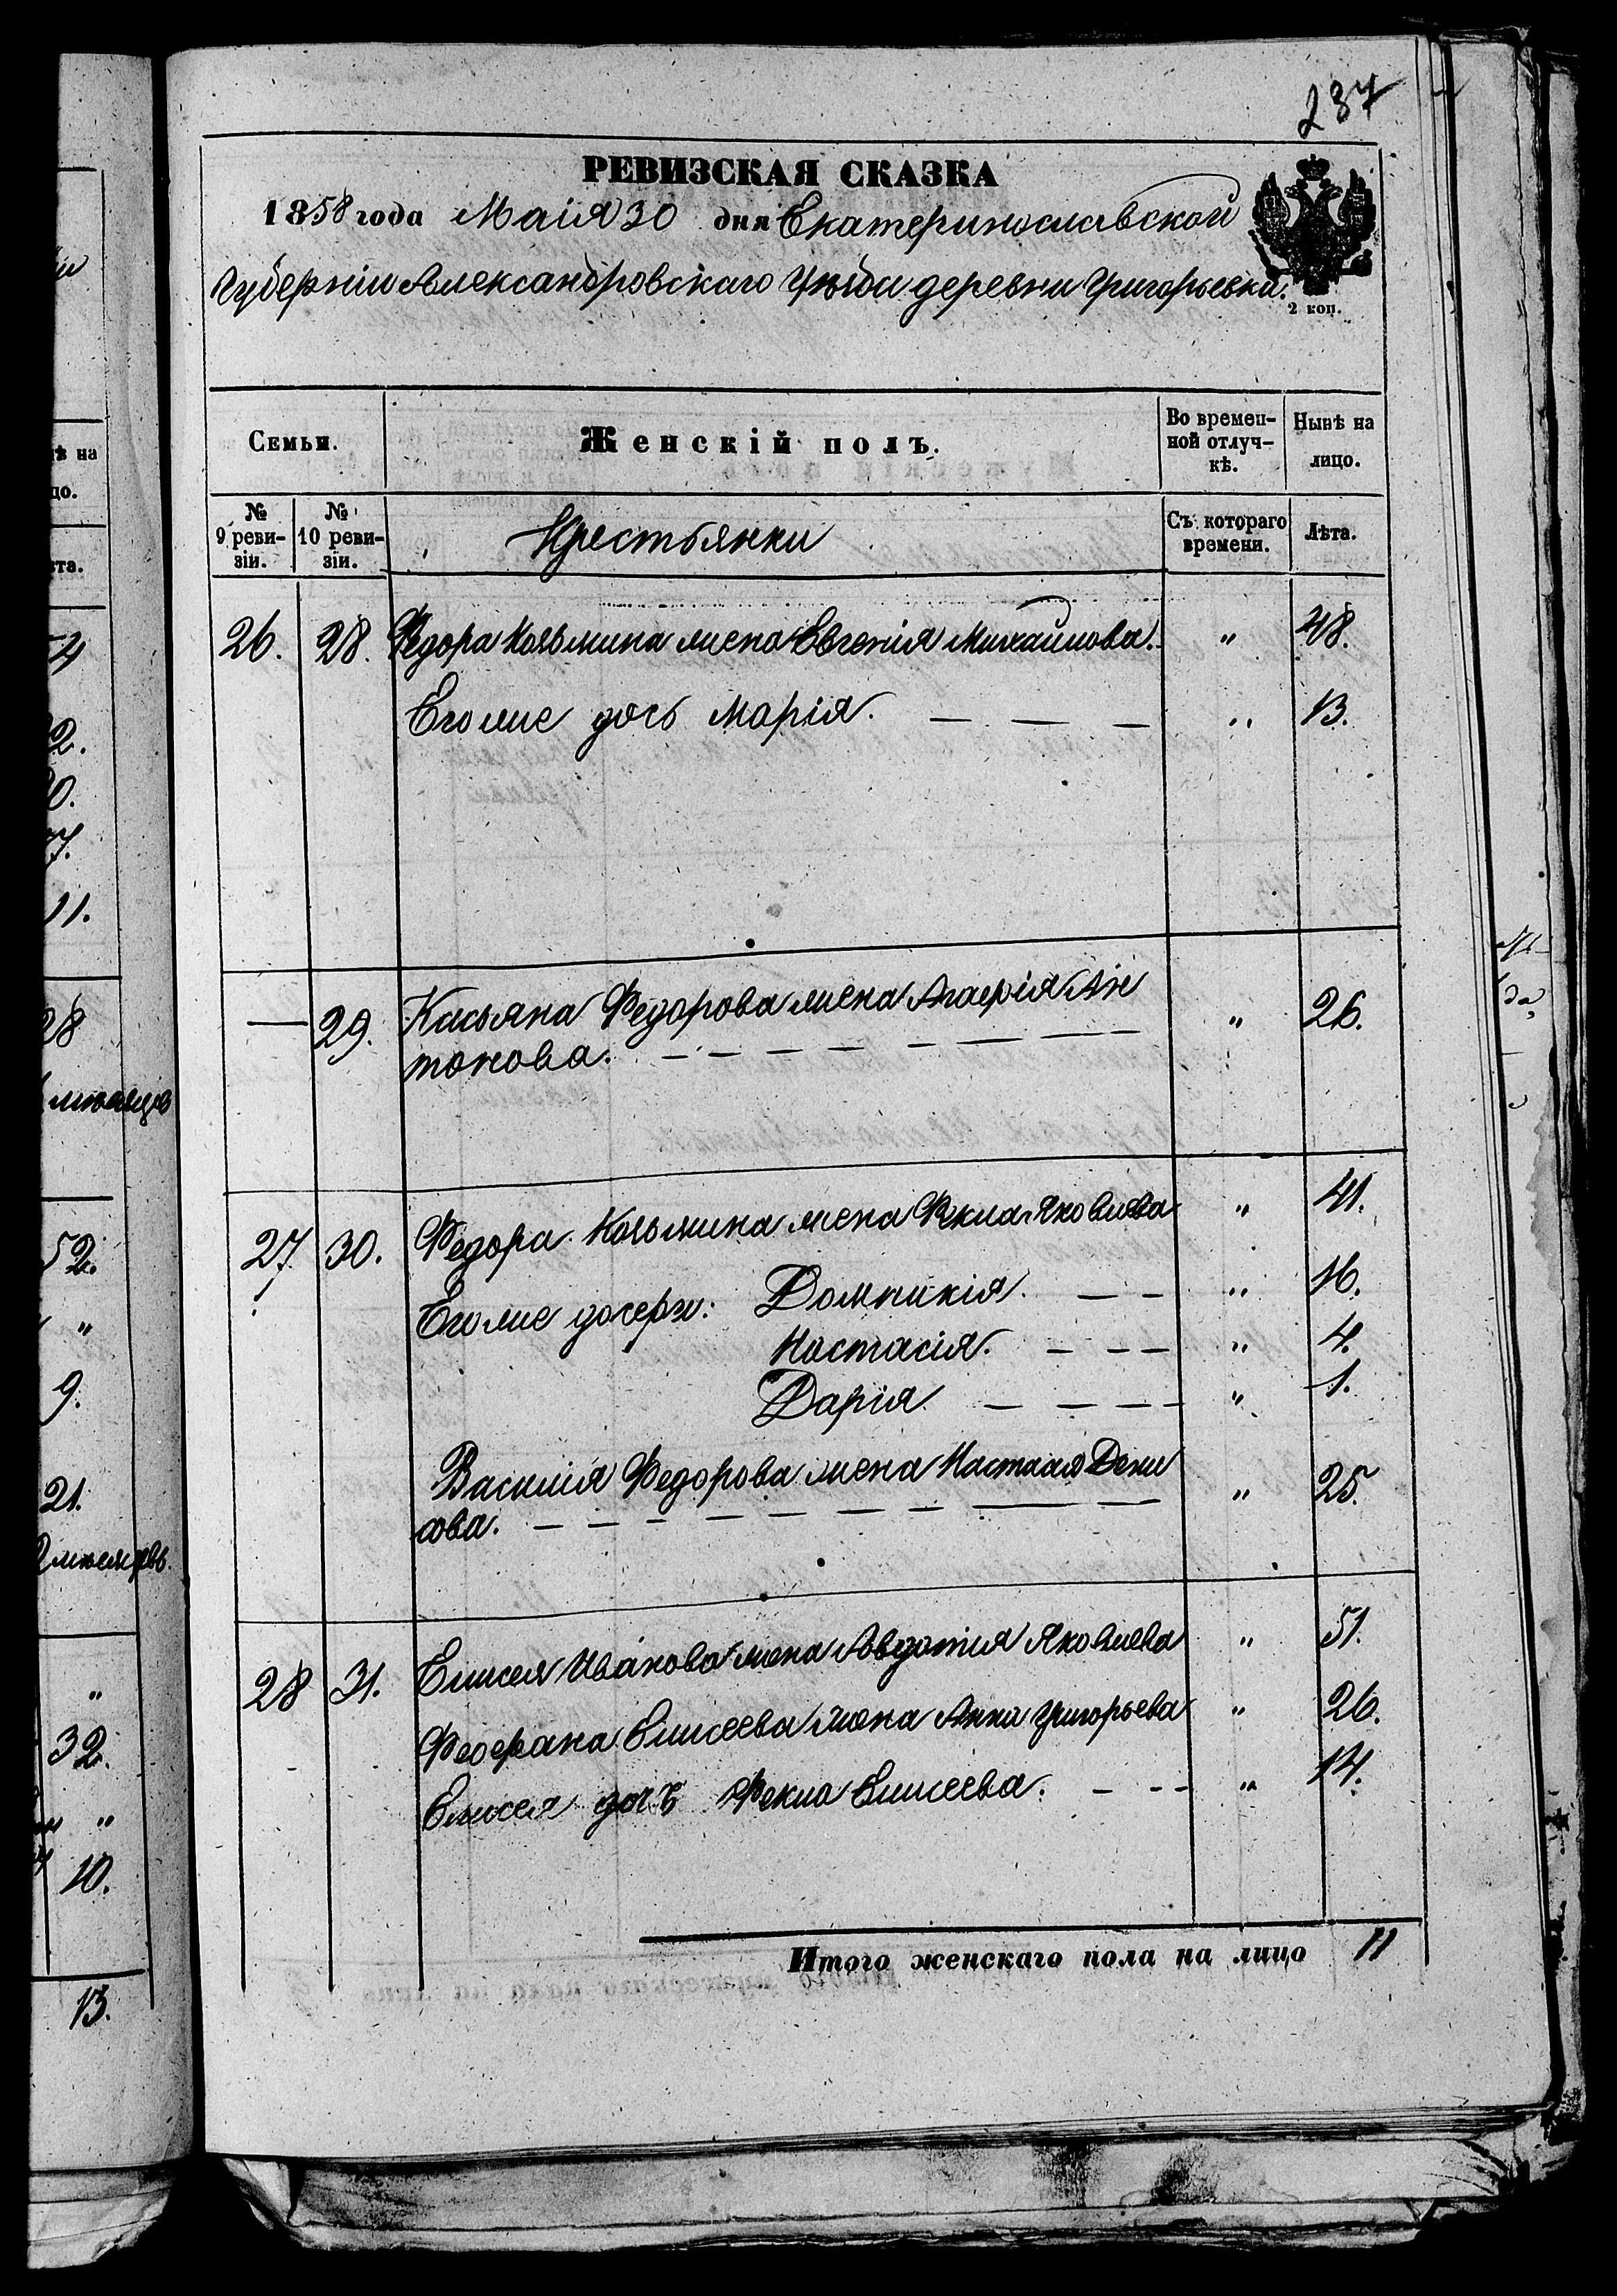 237
РЕВИЗСКАЯ СКАЗКА
1858 года Маія 30 дня Екатеринославской
Губерніи Александровскаго Уѣзда деревни Григорьевки.
2 коп.
Семьи. Женскій полъ. Во времен- Нынѣ на
ной отлуч- лицо.
кѣ.
№ № Крестьянки Съ котораго Лѣта.
9 реви- 10 реви- времени.
зіи. зіи.
26. 28. Федора Козьмина жена Евгенія Михайлова. " 48.
Его же дочь Марія. — — — " 13.
— 29. Касьяна Федорова жена Агафія Ан " 26.
тонова. — — — — — — —
27. 30. Федора Козьмина жена Фекла Яковлева " 41.
Его же дочери: Домникія. — — " 16.
Настасія. — — — " 4.
Дарія — — — — " 1.
Василія Федорова жена Настасія Дени " 25.
сова. — — — — — — — — —
28 31. Елисея Иванова жена Авдотия Яковлева " 51.
Феофана Елисеева жена Анна Григорьева " 26.
Елисея дочь Фекла Елисеева. — — — " 14.
Итого женскаго пола на лицо 11
ѣ на
цо.
ѣта.
2.
0.
7.
11.
28
52.
"
9.
21.
"
32.
"
10.
13.